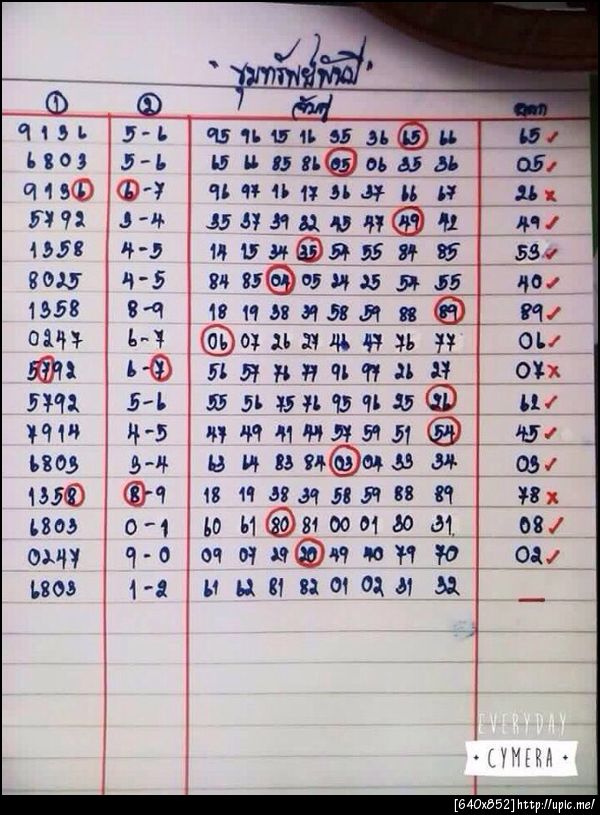 "ชุมทรัพย์พันปี"
① ② จับคู่ ออก
9136 5-6 95 96 15 16 35 36 65 66 65 ✓
6803 5-6 65 66 85 86 05 06 35 36 05 ✓
9136 6-7 96 97 16 17 36 37 66 67 26 ×
5792 3-4 35 37 39 32 45 47 49 42 49 ✓
1358 4-5 14 15 34 35 54 55 84 85 53 ✓
8025 4-5 84 85 04 05 24 25 54 55 40 ✓
1358 8-9 18 19 38 39 58 59 88 89 89 ✓
0247 6-7 06 07 26 27 46 47 76 77 06 ✓
5792 6-7 56 57 76 77 96 97 26 27 07 ×
5792 5-6 55 56 75 76 95 96 25 26 62 ✓
7914 4-5 47 49 41 44 57 59 51 54 45 ✓
6803 3-4 63 64 83 84 03 04 33 34 03 ✓
1358 8-9 18 19 38 39 58 59 88 89 78 ×
6803 0-1 60 61 80 81 00 01 30 31 08 ✓
0247 9-0 09 07 29 20 49 40 79 70 02 ✓
6803 1-2 61 62 81 82 01 02 31 32 —
EVERYDAY
• CYMERA •
[640x852]http://upic.me/